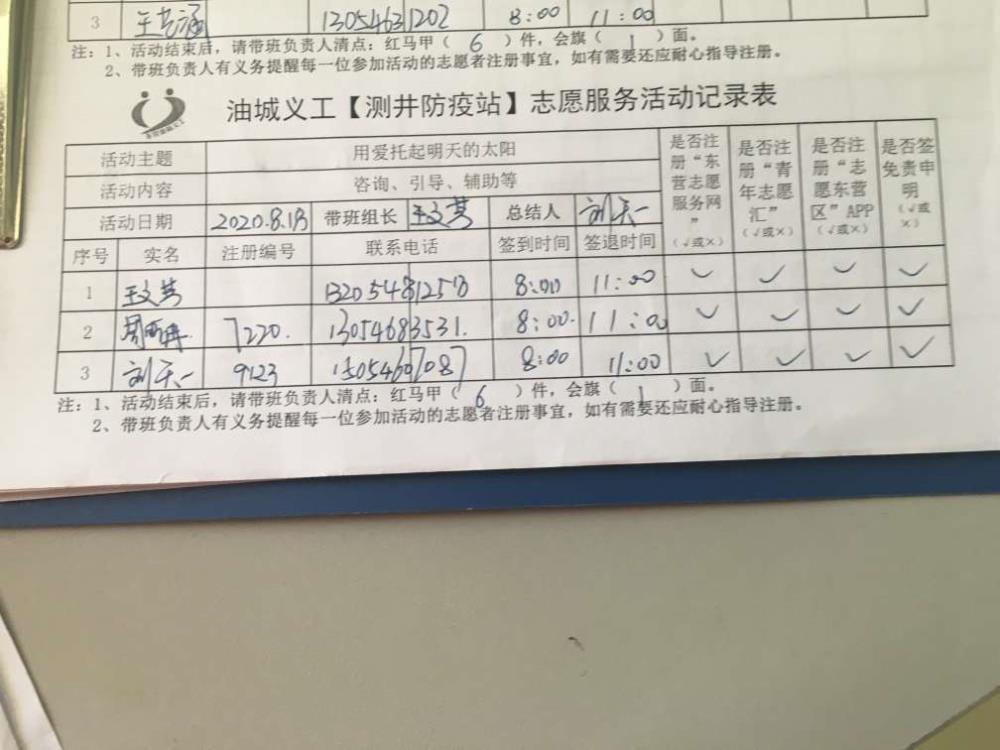 3 王艺涵 13054631202 8:00 11:00
注：1、活动结束后，请带班负责人清点：红马甲（ 6 ）件，会旗（ 1 ）面。
2、带班负责人有义务提醒每一位参加活动的志愿者注册事宜，如有需要还应耐心指导注册。
油城义工【测井防疫站】志愿服务活动记录表
活动主题 用爱托起明天的太阳 是否注册“东营志愿服务网”（√或×） 是否注册“青年志愿汇”（√或×） 是否注册“志愿东营区”APP（√或×） 是否签免责申明（√或×）
活动内容 咨询、引导、辅助等
活动日期 2020.8.18 带班组长 王文英 总结人 刘天一
序号 实名 注册编号 联系电话 签到时间 签退时间
1 王文英 8:00 11:00 ✓ ✓ ✓ ✓
2 7220. 13054683531. 8:00. 11:00 ✓ ✓ ✓ ✓
3 刘天一 9123 15054607087 8:00 11:00 ✓ ✓ ✓ ✓
注：1、活动结束后，请带班负责人清点：红马甲（ 6 ）件，会旗（ 1 ）面。
2、带班负责人有义务提醒每一位参加活动的志愿者注册事宜，如有需要还应耐心指导注册。